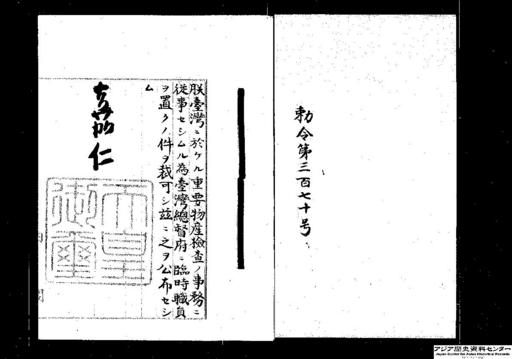 勅令第三百七十号
朕臺灣ニ於ケル重要物産檢査ノ事務ニ
從事セシムル為臺灣總督府ニ臨時職員
ヲ置クノ件ヲ裁可シ茲ニ之ヲ公布セシ
ム
嘉仁
天皇御璽
アジア歴史資料センター
Japan Center for Asian Historical Records